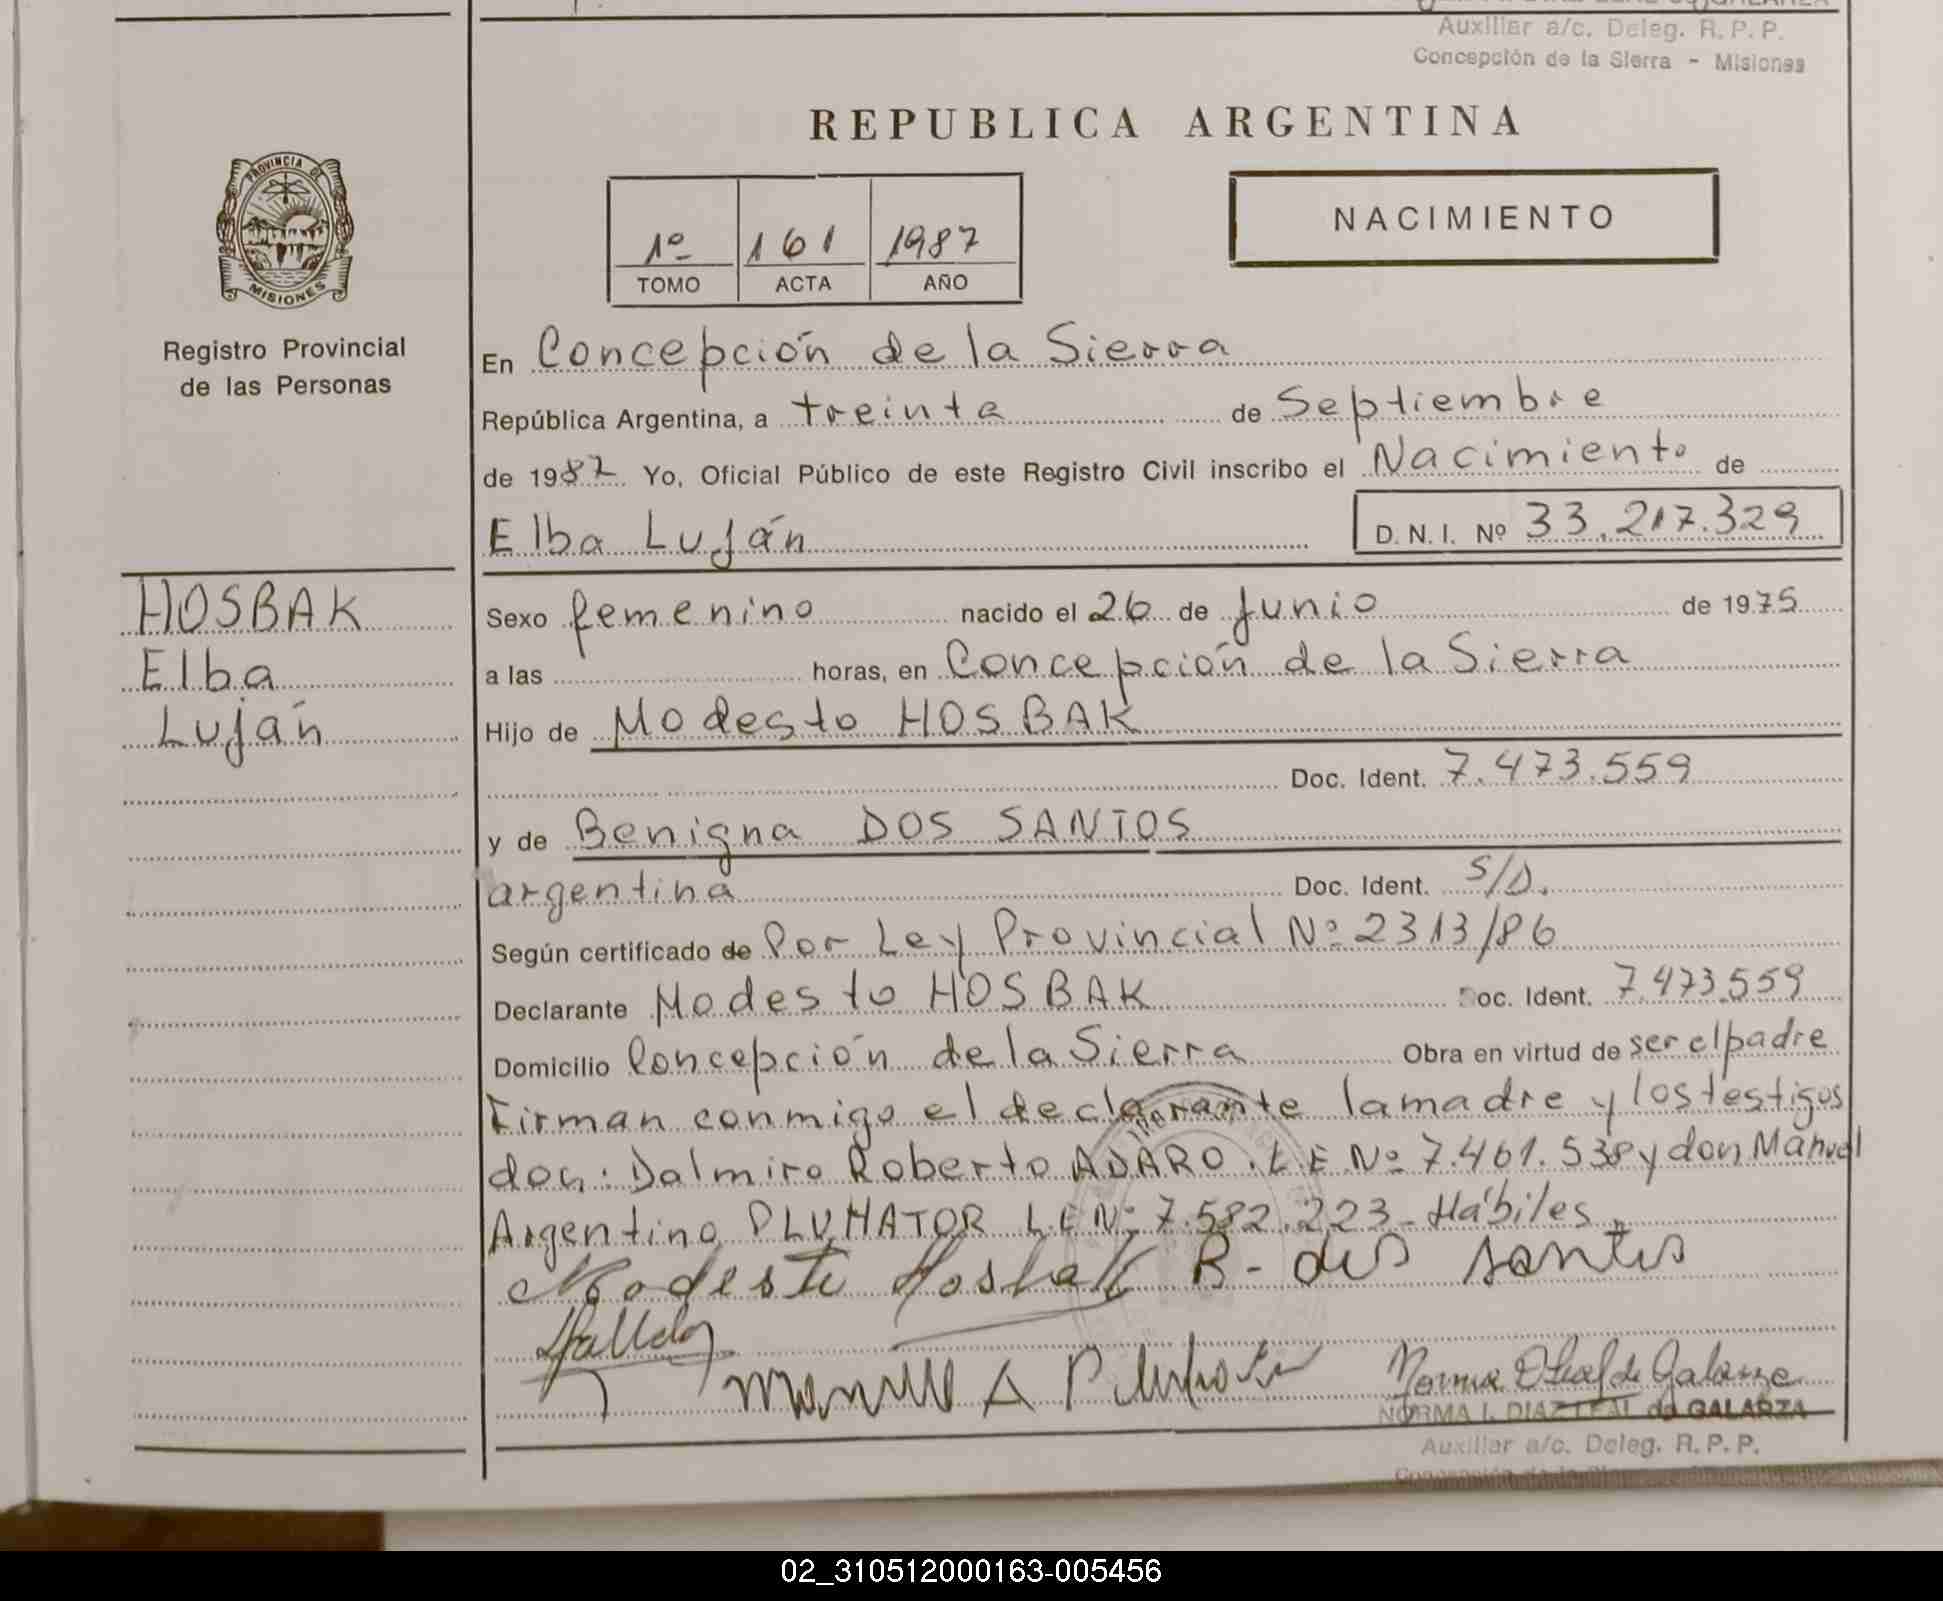 Auxiliar a/c. Deleg. R. P. P.
Concepción de la Sierra - Misiones
REPUBLICA ARGENTINA
PROVINCIA DE
MISIONES
Registro Provincial
de las Personas
1º 161 1987
TOMO ACTA AÑO
NACIMIENTO
En Concepción de la Sierra
República Argentina, a treinta de Septiembre
de 1987 Yo, Oficial Público de este Registro Civil inscribo el Nacimiento de
Elba Luján D. N. I. Nº 33.217.329
HOSBAK
Elba
Luján
Sexo femenino nacido el 26 de Junio de 1975
a las horas, en Concepción de la Sierra
Hijo de Modesto HOSBAK
Doc. Ident. 7.473.559
y de Benigna DOS SANTOS
argentina Doc. Ident. S/D.
Según certificado de Por Ley Provincial Nº 2313/86
Declarante Modesto HOSBAK Doc. Ident. 7.473.559
Domicilio Concepción de la Sierra Obra en virtud de ser el padre
Firman conmigo el declarante la madre y los testigos
don: Dalmiro Roberto ADARO L.E Nº 7.461.538 y don Manuel
Argentino PLUHATOR L.E Nº 7.582.223 - Hábiles
Modesto Hosbak B - dos santos
NORMA I. DIAZ LEAL de GALARZA
Auxiliar a/c. Deleg. R. P. P.
02_310512000163-005456